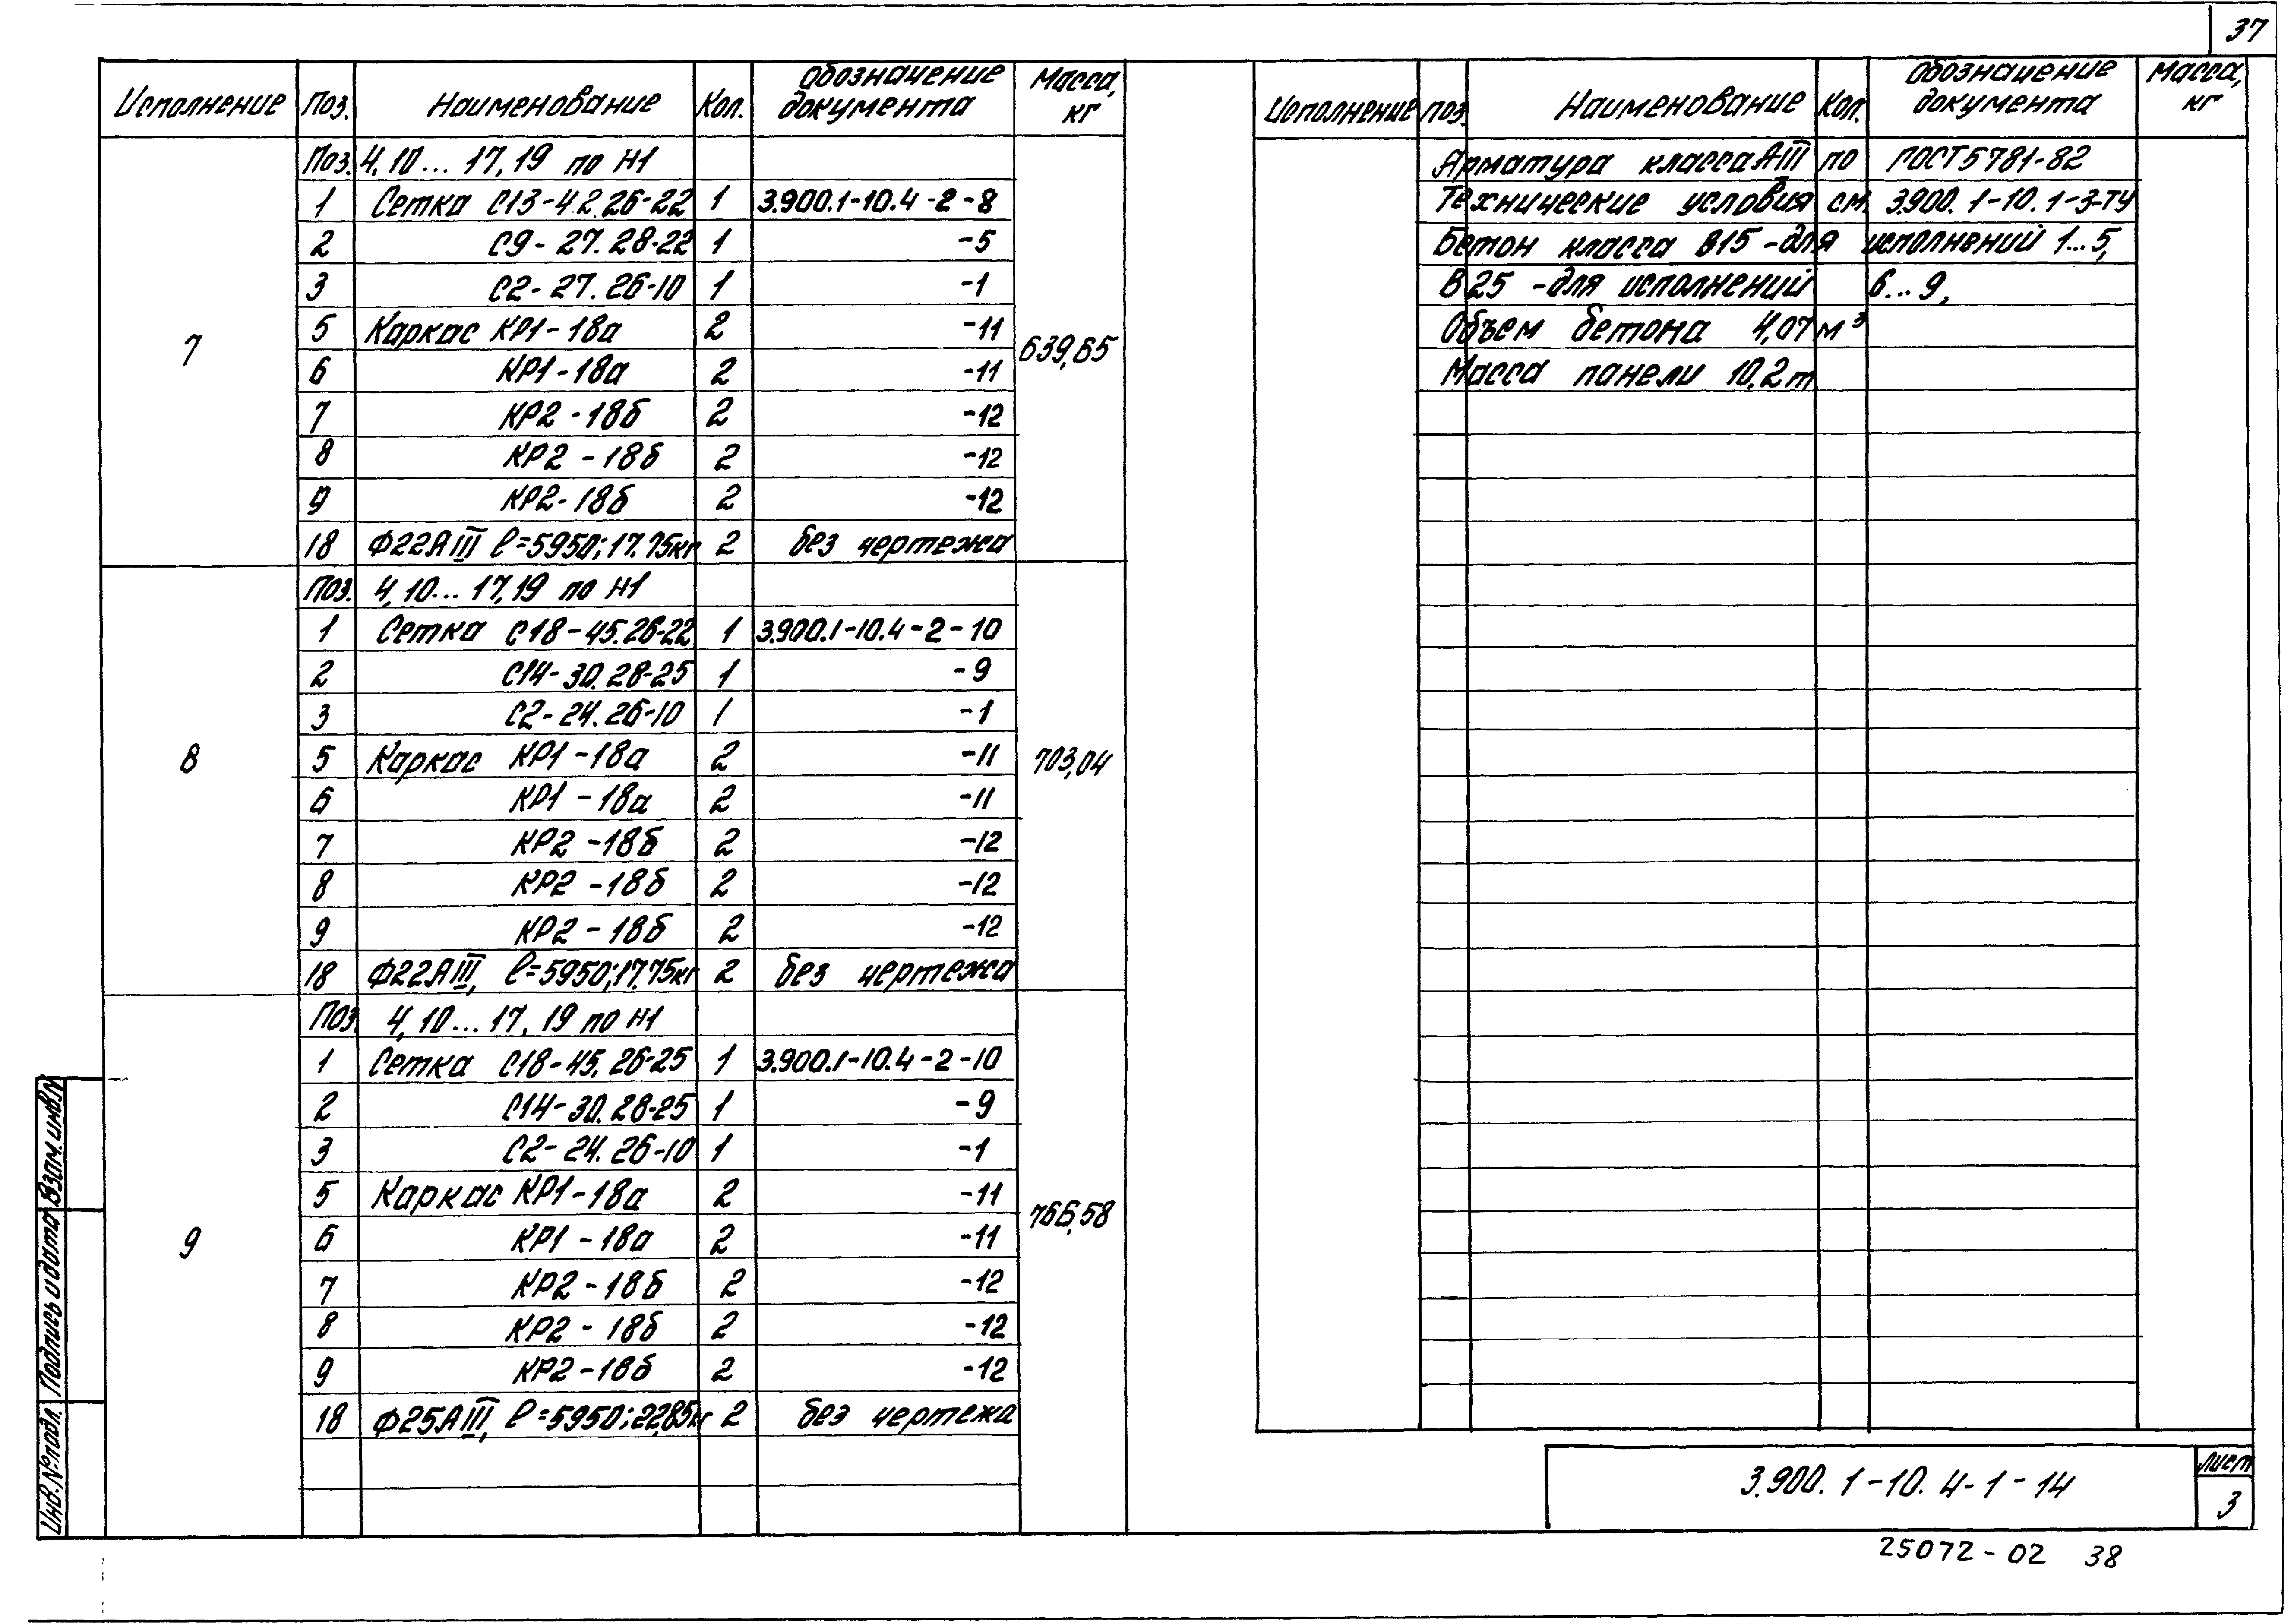 37
Исполнение Поз. Наименование Кол. Обозначение документа Масса, кг
7
639,65
Поз. 4,10...17,19 по И1
1 Сетка С13-42.26-22 1 3.900.1-10.4-2-8
2 С9-27.28-22 1 -5
3 С2-27.26-10 1 -1
5 Каркас КР1-18а 2 -11
6 КР1-18а 2 -11
7 КР2-18б 2 -12
8 КР2-18б 2 -12
9 КР2-18б 2 -12
18 Ф22АIII ℓ=5950; 17.75кг 2 без чертежа
8
703,04
Поз. 4,10...17,19 по И1
1 Сетка С18-45.26-22 1 3.900.1-10.4-2-10
2 С14-30.28-25 1 -9
3 С2-24.26-10 1 -1
5 Каркас КР1-18а 2 -11
6 КР1-18а 2 -11
7 КР2-18б 2 -12
8 КР2-18б 2 -12
9 КР2-18б 2 -12
18 Ф22АIII, ℓ=5950; 17.75кг 2 без чертежа
9
766,58
Поз. 4,10...17,19 по И1
1 Сетка С18-45.26-25 1 3.900.1-10.4-2-10
2 С14-30.28-25 1 -9
3 С2-24.26-10 1 -1
5 Каркас КР1-18а 2 -11
6 КР1-18а 2 -11
7 КР2-18б 2 -12
8 КР2-18б 2 -12
9 КР2-18б 2 -12
18 Ф25АIII, ℓ=5950; 22,85кг 2 без чертежа
Исполнение поз. Наименование Кол. Обозначение документа Масса, кг
Арматура класса АIII по ГОСТ 5781-82
Технические условия см. 3.900.1-10.1-3-ТУ
Бетон класса В15-для исполнений 1...5,
В25-для исполнений 6...9,
Объем бетона 4,07м³
Масса панели 10,2т
Инв.№подл. Подпись и дата Взам.инв.N
3.900.1-10.4-1-14
Лист
3
25072-02 38